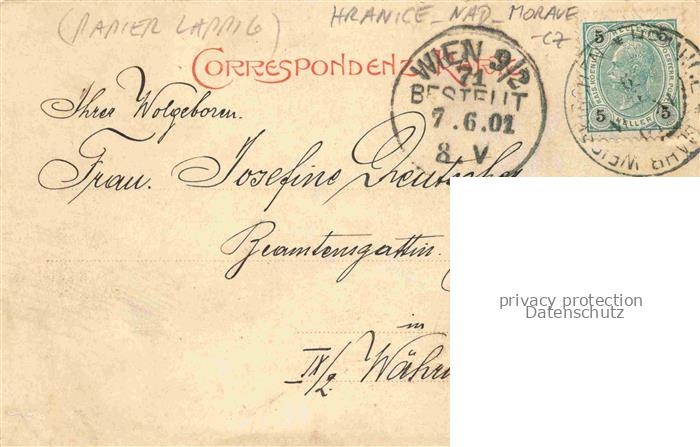 (PAPIER LAPPIG)
HRANICE_NAD_MORAVE
-CZ
CORRESPONDENZ-KARTE
WIEN 9/2
71
BESTELLT
7.6.01
8.V
5 5
5 HELLER 5
Ihrer Wolgeboren.
Frau. Josefine Deutscher
Beamtensgattin.
in
IX/2. Währ
privacy protection
Datenschutz